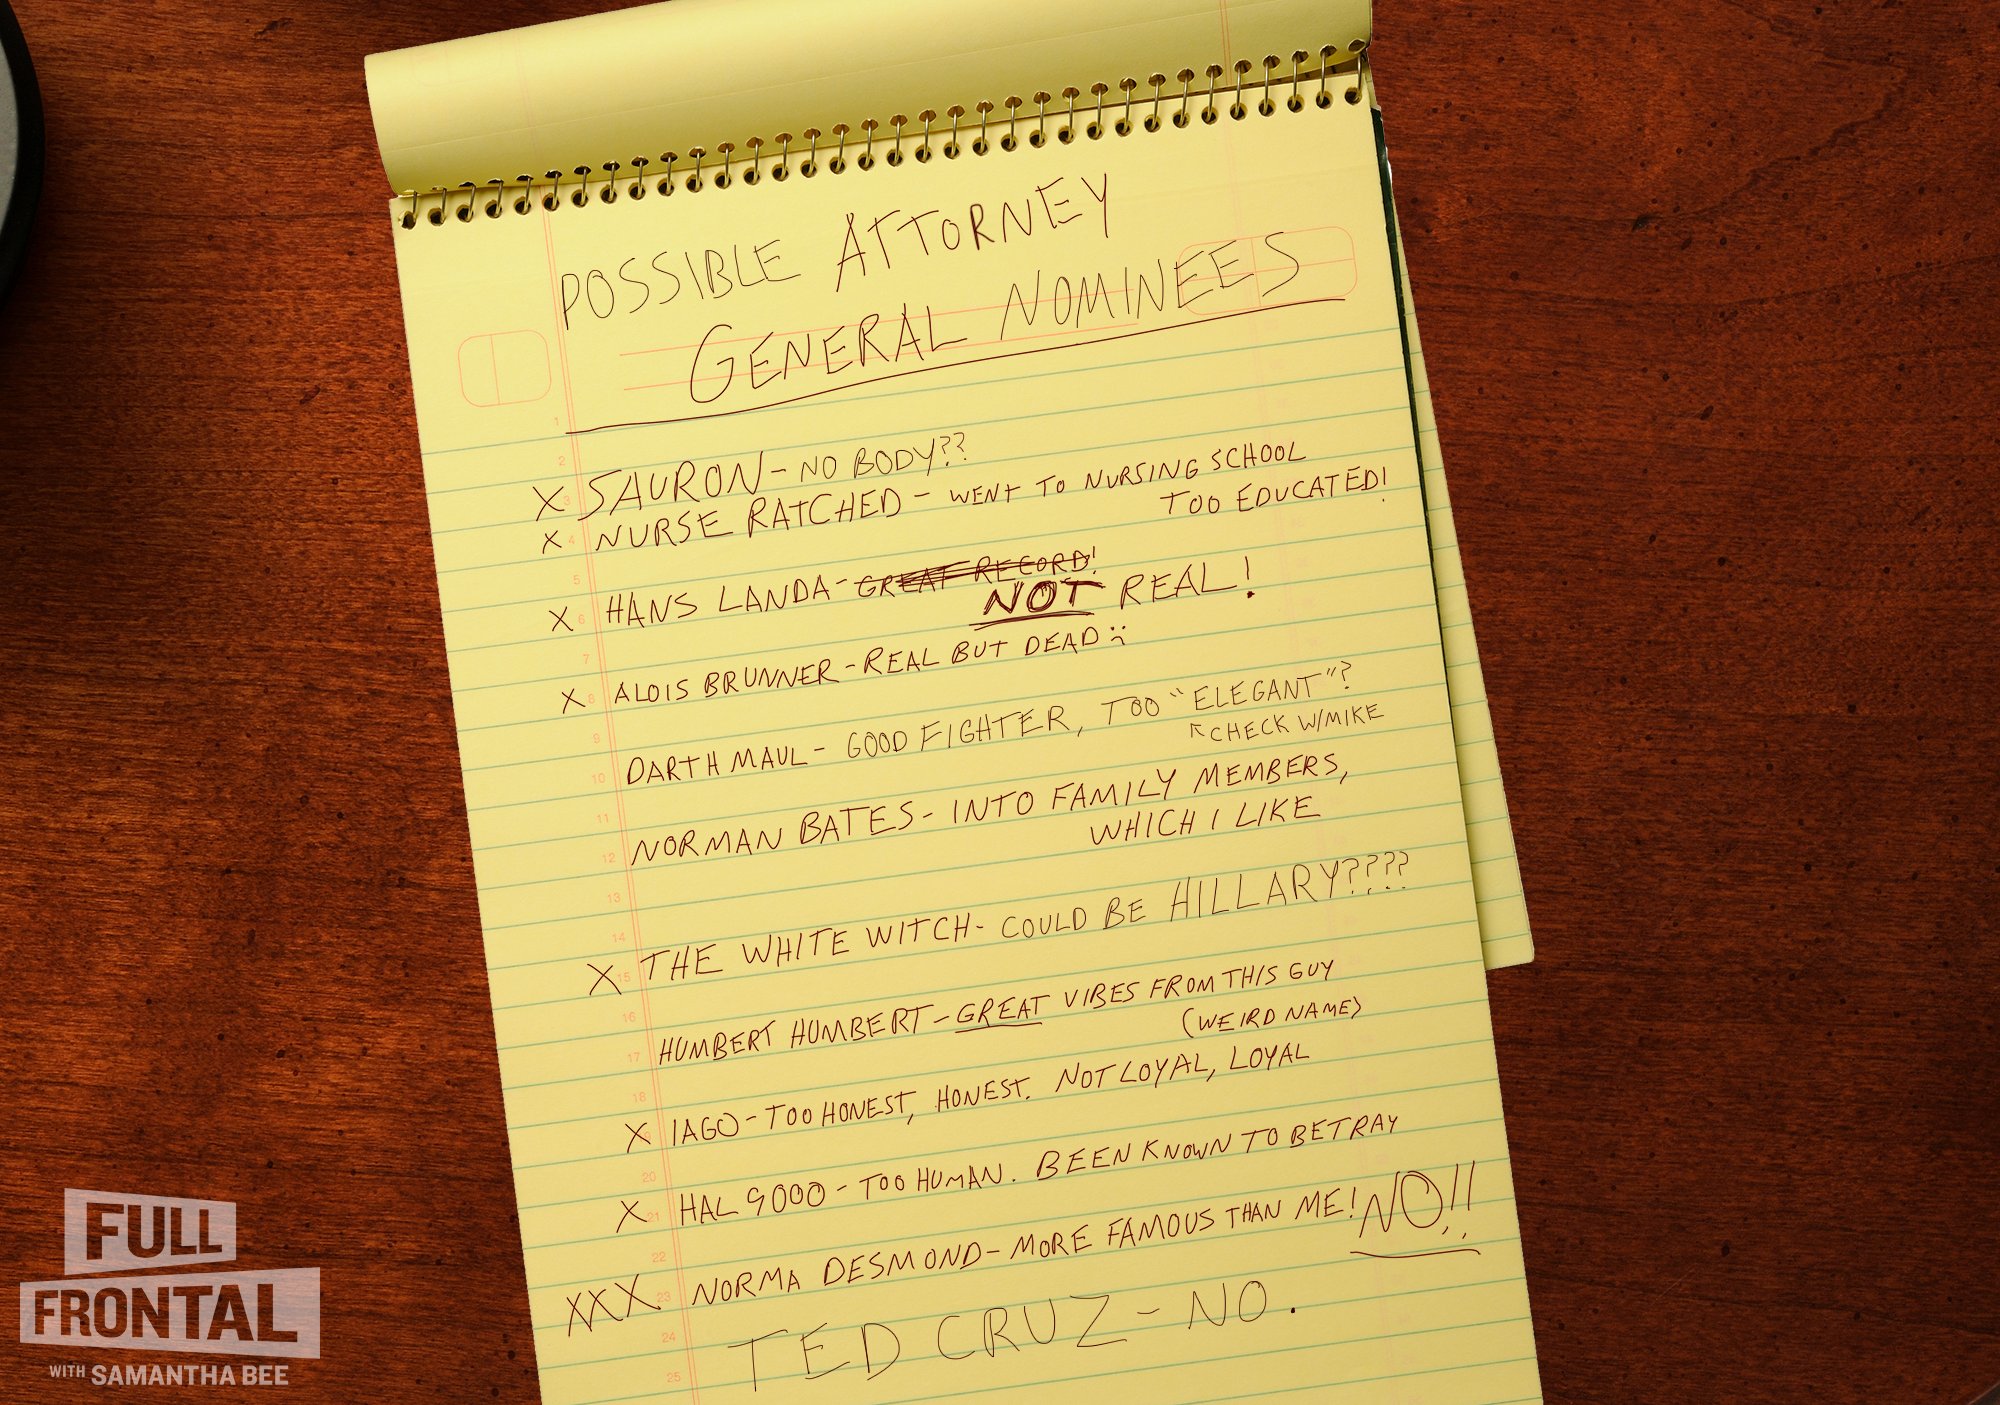 POSSIBLE ATTORNEY
GENERAL NOMINEES
1
2
3
X SAURON - NO BODY??
4
X NURSE RATCHED - WENT TO NURSING SCHOOL
TOO EDUCATED!
5
6
X HANS LANDA - GREAT RECORD!
NOT REAL!
7
8
X ALOIS BRUNNER - REAL BUT DEAD :(
9
10
DARTH MAUL - GOOD FIGHTER, TOO "ELEGANT"?
↖CHECK W/MIKE
11
12
NORMAN BATES - INTO FAMILY MEMBERS,
WHICH I LIKE
13
14
15
X THE WHITE WITCH - COULD BE HILLARY????
16
17
HUMBERT HUMBERT - GREAT VIBES FROM THIS GUY
(WEIRD NAME)
18
X IAGO - TOO HONEST, HONEST. NOT LOYAL, LOYAL
20
21
X HAL 9000 - TOO HUMAN. BEEN KNOWN TO BETRAY
22
23
XXX NORMA DESMOND - MORE FAMOUS THAN ME! NO!!
24
TED CRUZ - NO.
25
FULL
FRONTAL
WITH SAMANTHA BEE